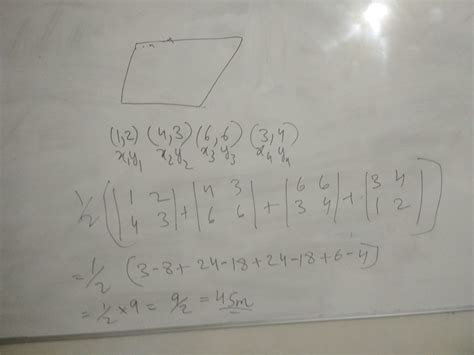 (1,2) (4,3) (6,6) (3,4)
x₁y₁ x₂y₂ x₃y₃ x₄y₄
1/2 ( |1 2; 4 3| + |4 3; 6 6| + |6 6; 3 4| + |3 4; 1 2| )
= 1/2 (3-8+24-18+24-18+6-4)
= 1/2 × 9 = 9/2 = 4.5m